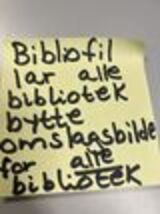 Bibliofil
lar alle
bibliotek
bytte
omslagsbilde
for alle
bibliotek